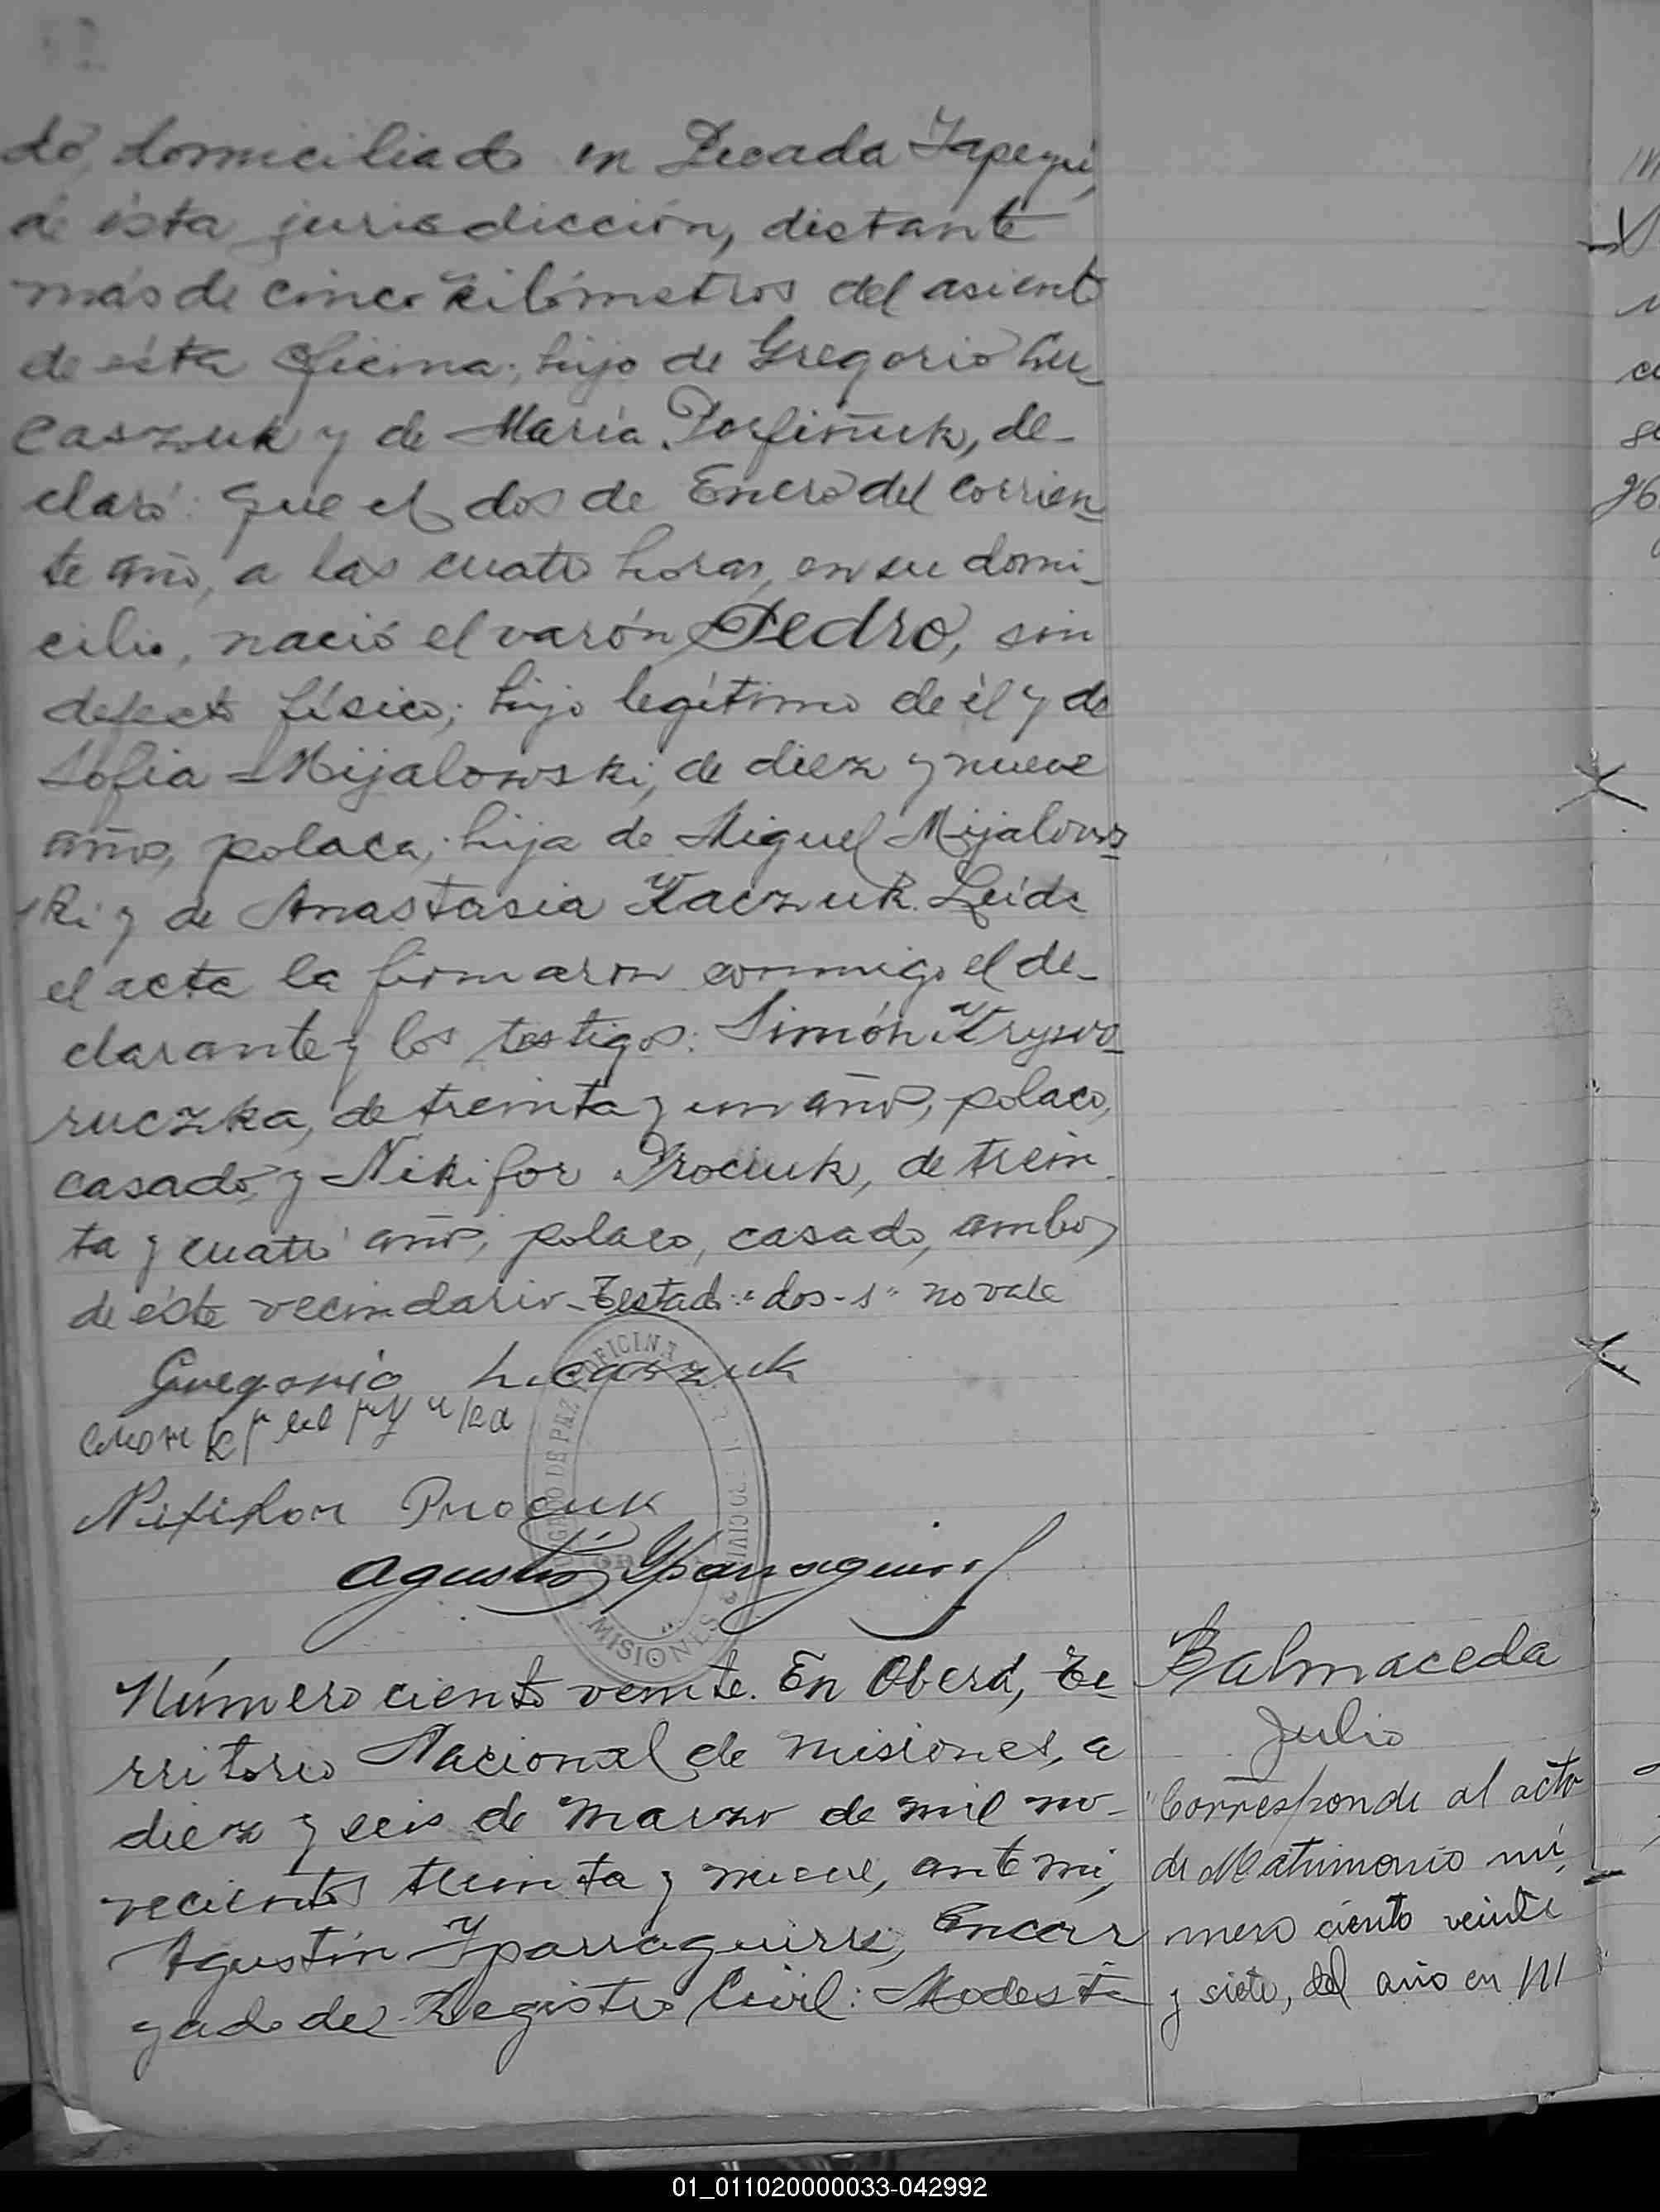 do, domiciliado en Picada Yapeyú,
de ésta jurisdicción, distante
más de cinco kilómetros del asiento
de ésta Oficina; hijo de Gregorio Lu-
caszuk y de María Porfiñuk, de-
claró: Que el dos de Enero del corrien-
te año, a las cuatro horas, en su domi-
cilio, nació el varón Pedro, sin
defecto físico; hijo legítimo de él y de
Sofia Mijalowski, de diez y nueve
años, polaca; hija de Miguel Mijalows-
ki y de Anastasia Kaczuk. Leída
el acta la firmaron conmigo el de-
clarante y los testigos: Simón Krywo-
ruczka, de treinta y un años, polaco,
casado, y Nikifor Prociuk, de trein-
ta y cuatro años, polaco, casado, ambos
de éste vecindario. Testado: "dos-s" no vale
Gregorio Lucaszuk
Nikifor Procuk
Agustín Yparraguirre
OFICINA
JUZGADO DE PAZ
CIVIL
MISIONES
Número ciento veinte. En Oberá, Te-
rritorio Nacional de Misiones, a
diez y seis de Marzo de mil no-
vecientos treinta y nueve, ante mí,
Agustín Yparraguirre, Encar-
gado del Registro Civil: Modesta
Balmaceda
Julio
"Corresponde al acta
de Matrimonio nú-
mero ciento veinte
y siete, del año en
01_011020000033-042992